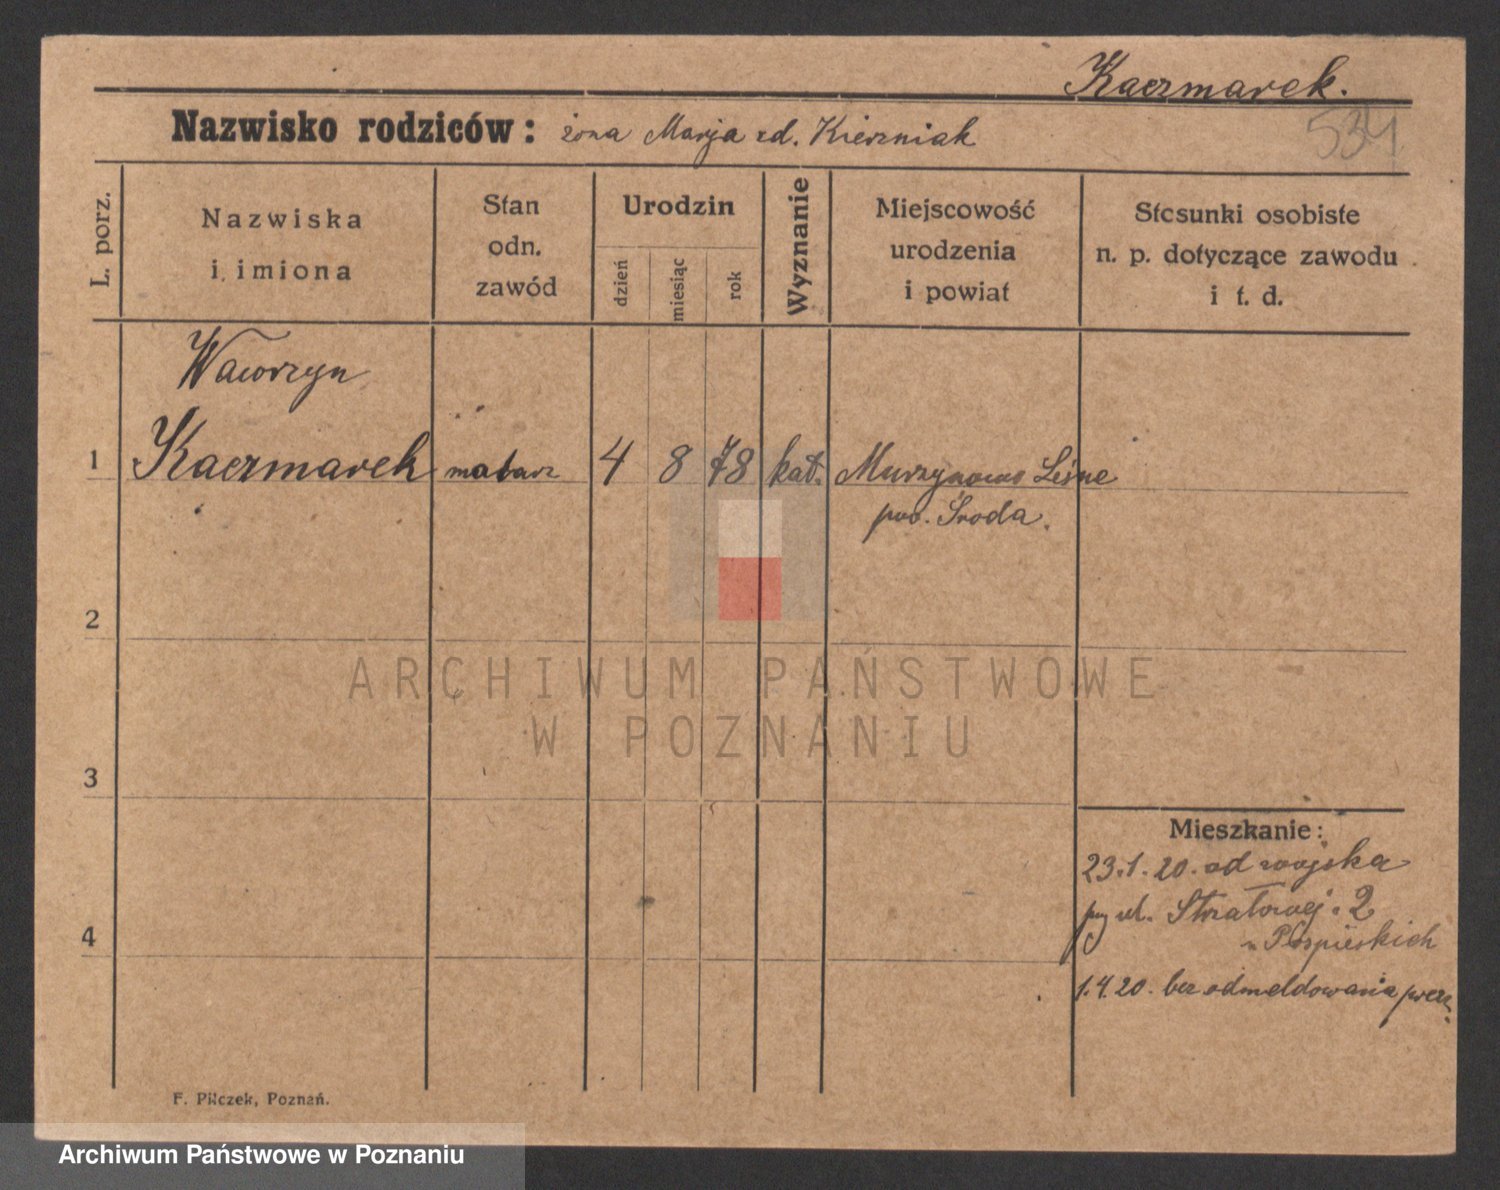 Kaczmarek.
Nazwisko rodziców: żona Marja zd. Kierzniak
534
L. porz.
Nazwiska
i imiona
Stan
odn.
zawód
Urodzin
dzień
miesiąc
rok
Wyznanie
Miejscowość
urodzenia
i powiat
Stosunki osobiste
n. p. dotyczące zawodu
i t. d.
Wawrzyn
1 Kaczmarek malarz 4 8 78 kat. Murzynowo Leśne
pow. Środa.
2
ARCHIWUM PAŃSTWOWE
W POZNANIU
3
Mieszkanie:
23.1.20. od wojska
przy ul. Strzałowej. 2
u Pospieskich
4
1.4.20. bez odmeldowania
F. Pilczek, Poznań.
Archiwum Państwowe w Poznaniu